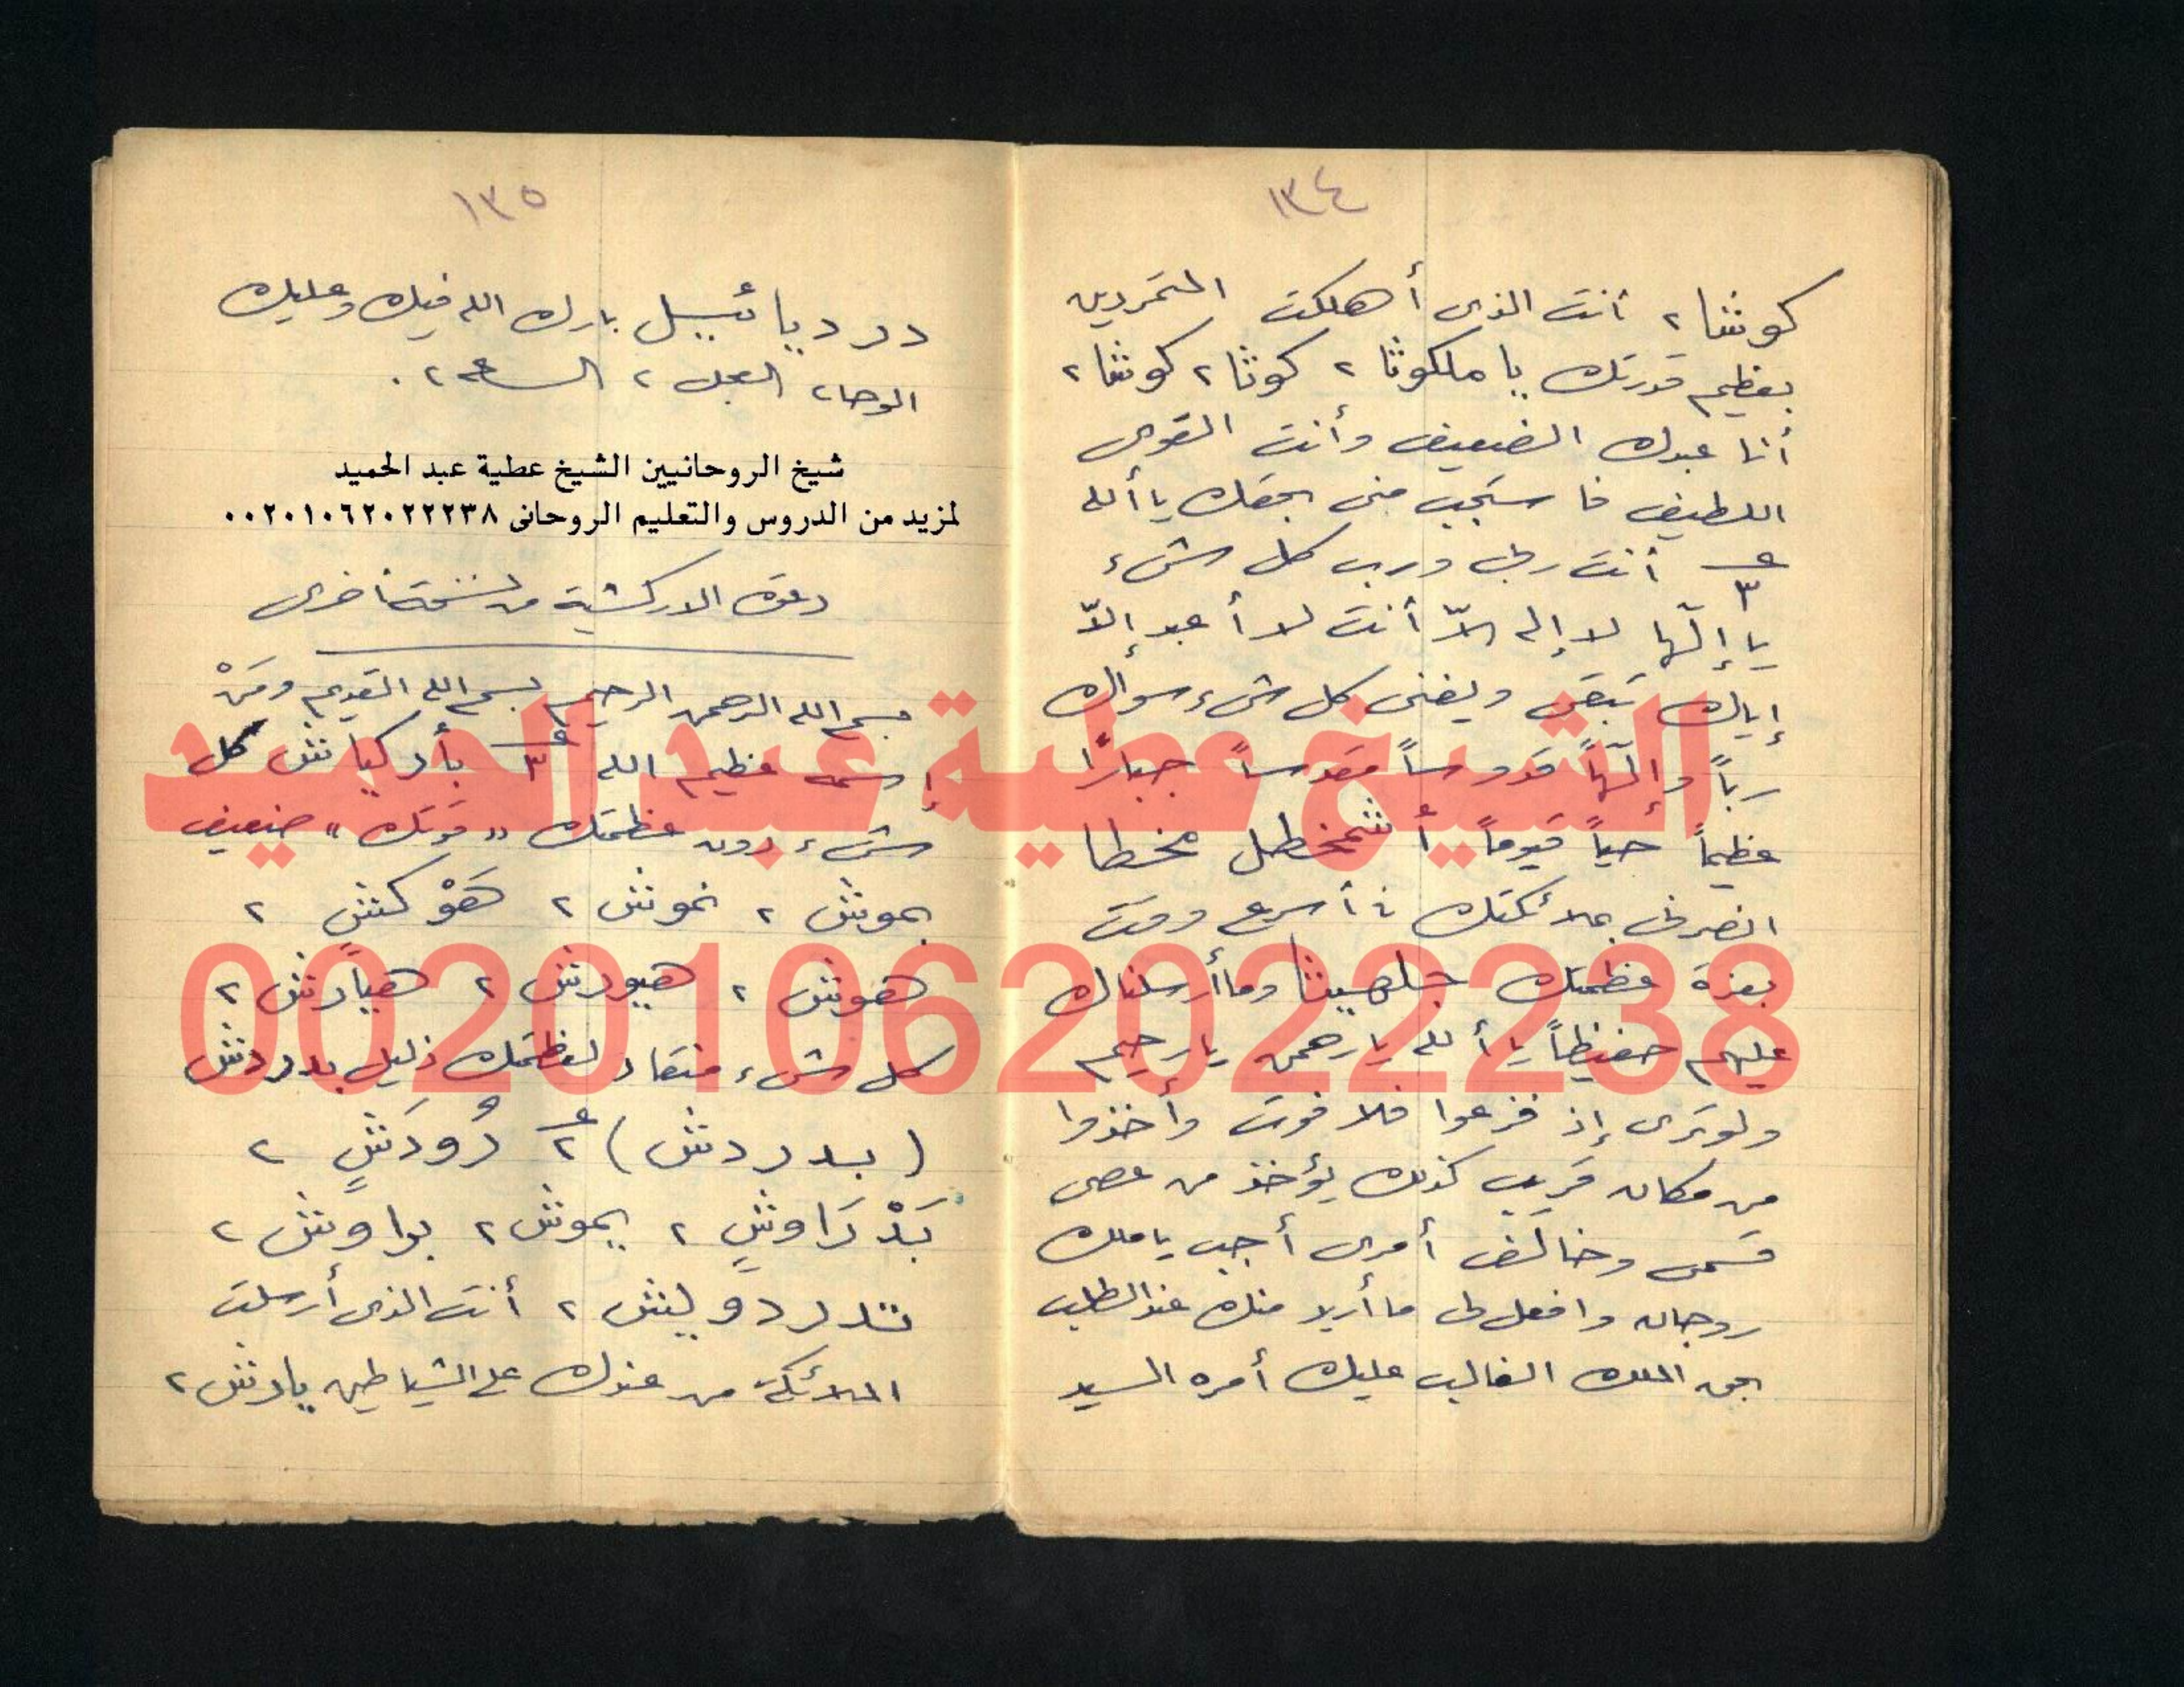 ١٣٤
كوشا ٢ أنت الذى أهلكت المتمردين
بعظيم قدرتك يا ملكوثا ٢ كوثا ٢ كوشا ٢
أنا عبدك الضعيف وأنت القوى
اللطيف فاستجب منى بحقك يا ألله
ع ٣ أنت ربى ورب كل شىء
يا إلٓها لا إله إلاّ أنت لا أعبد إلاّ
إياك تبقى ويفنى كل شىء سواك
رباً وإلٓهاً قدوساً مقدوساً جباراً
عظيماً حياً قيوماً أشمخطل مخطا
انصرنى بملائكتك فى أسرع وقت
بعزة عظمتك وما أرسلناك
عليهم حفيظاً يا ألله يا رحمن يا رحيم
ولو ترى إذ فزعوا فلا فوت وأخذوا
من مكان قريب كذلك يؤخذ من عصى
قسمى وخالف أمرى أجب يا ملك
وافعل لى ما أريد منك عند الطلب
بحق الملك الغالب عليك أمره السيد
١٣٥
درديائييل بارك الله فيك وعليك
الوحا ٢ العجل ٢ الساعة ٢ .
شيخ الروحانيين الشيخ عطية عبد الحميد
لمزيد من الدروس والتعليم الروحانى ٠٠٢٠١٠٦٢٠٢٢٢٣٨
دعوة الاركشية من نسخة أخرى
بسم الله الرحمن الرحيم بسم الله القديم ومَنْ
إسمه عظيم الله ع ٣ بأركياش كل
شىء دون عظمتك "قوتك" ضعيف
بموش ٢ نموش ٢ هَوْكشٍ ٢
هموش ٢ هيورش ٢ هيارش ٢
كل شىء منقاد لعظمتك ذليل بدردش
(بدردش) ع ٢ دُودَشٍ ٢
بَدْرَاوشٍ ٢ يموش ٢ براوش ٢
٢ أنت الذى أرسلت
الملائكة من عندك على الشياطين يارش ٢
الشيخ عطية عبد الحميد
00201062022238